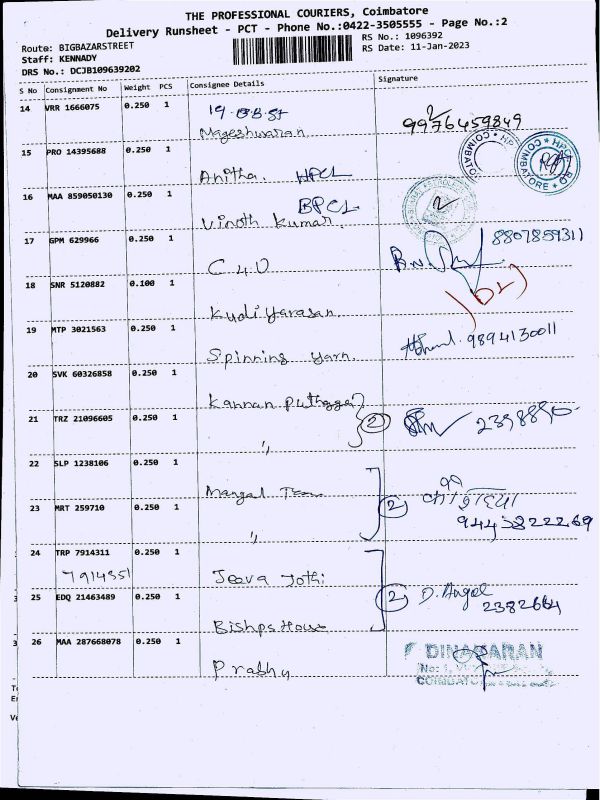 THE PROFESSIONAL COURIERS, Coimbatore
Delivery Runsheet - PCT - Phone No.:0422-3505555 - Page No.:2
Route: BIGBAZARSTREET
RS No.: 1096392
Staff: KENNADY
RS Date: 11-Jan-2023
DRS No.: DCJB109639202
S No Consignment No Weight PCS Consignee Details Signature
14 VRR 1666075 0.250 1 19-B.B.St
Mageshwaran 9976459849
15 PRO 14395688 0.250 1
Anitha. HPCL HPCL COIMBATORE
16 MAA 859050130 0.250 1 BPCL
Vinoth Kumar. 2
17 GPM 629966 0.250 1 8807859311
C 4 U
18 SNR 5120882 0.100 1
Kudiyarasan.
19 MTP 3021563 0.250 1
Spinning yarn. 9894130011
20 SVK 60326858 0.250 1
Kannan
21 TRZ 21096605 0.250 1 2
〃
22 SLP 1238106 0.250 1
Mangal
23 MRT 259710 0.250 1 2
〃
24 TRP 7914311 0.250 1
7914351 Jeeva Jothi
25 EDQ 21463489 0.250 1 2 D. Angel
2382664
Bishps House
26 MAA 287668078 0.250 1
Prabhu DINAKARAN
No: 1,
COIMBATO